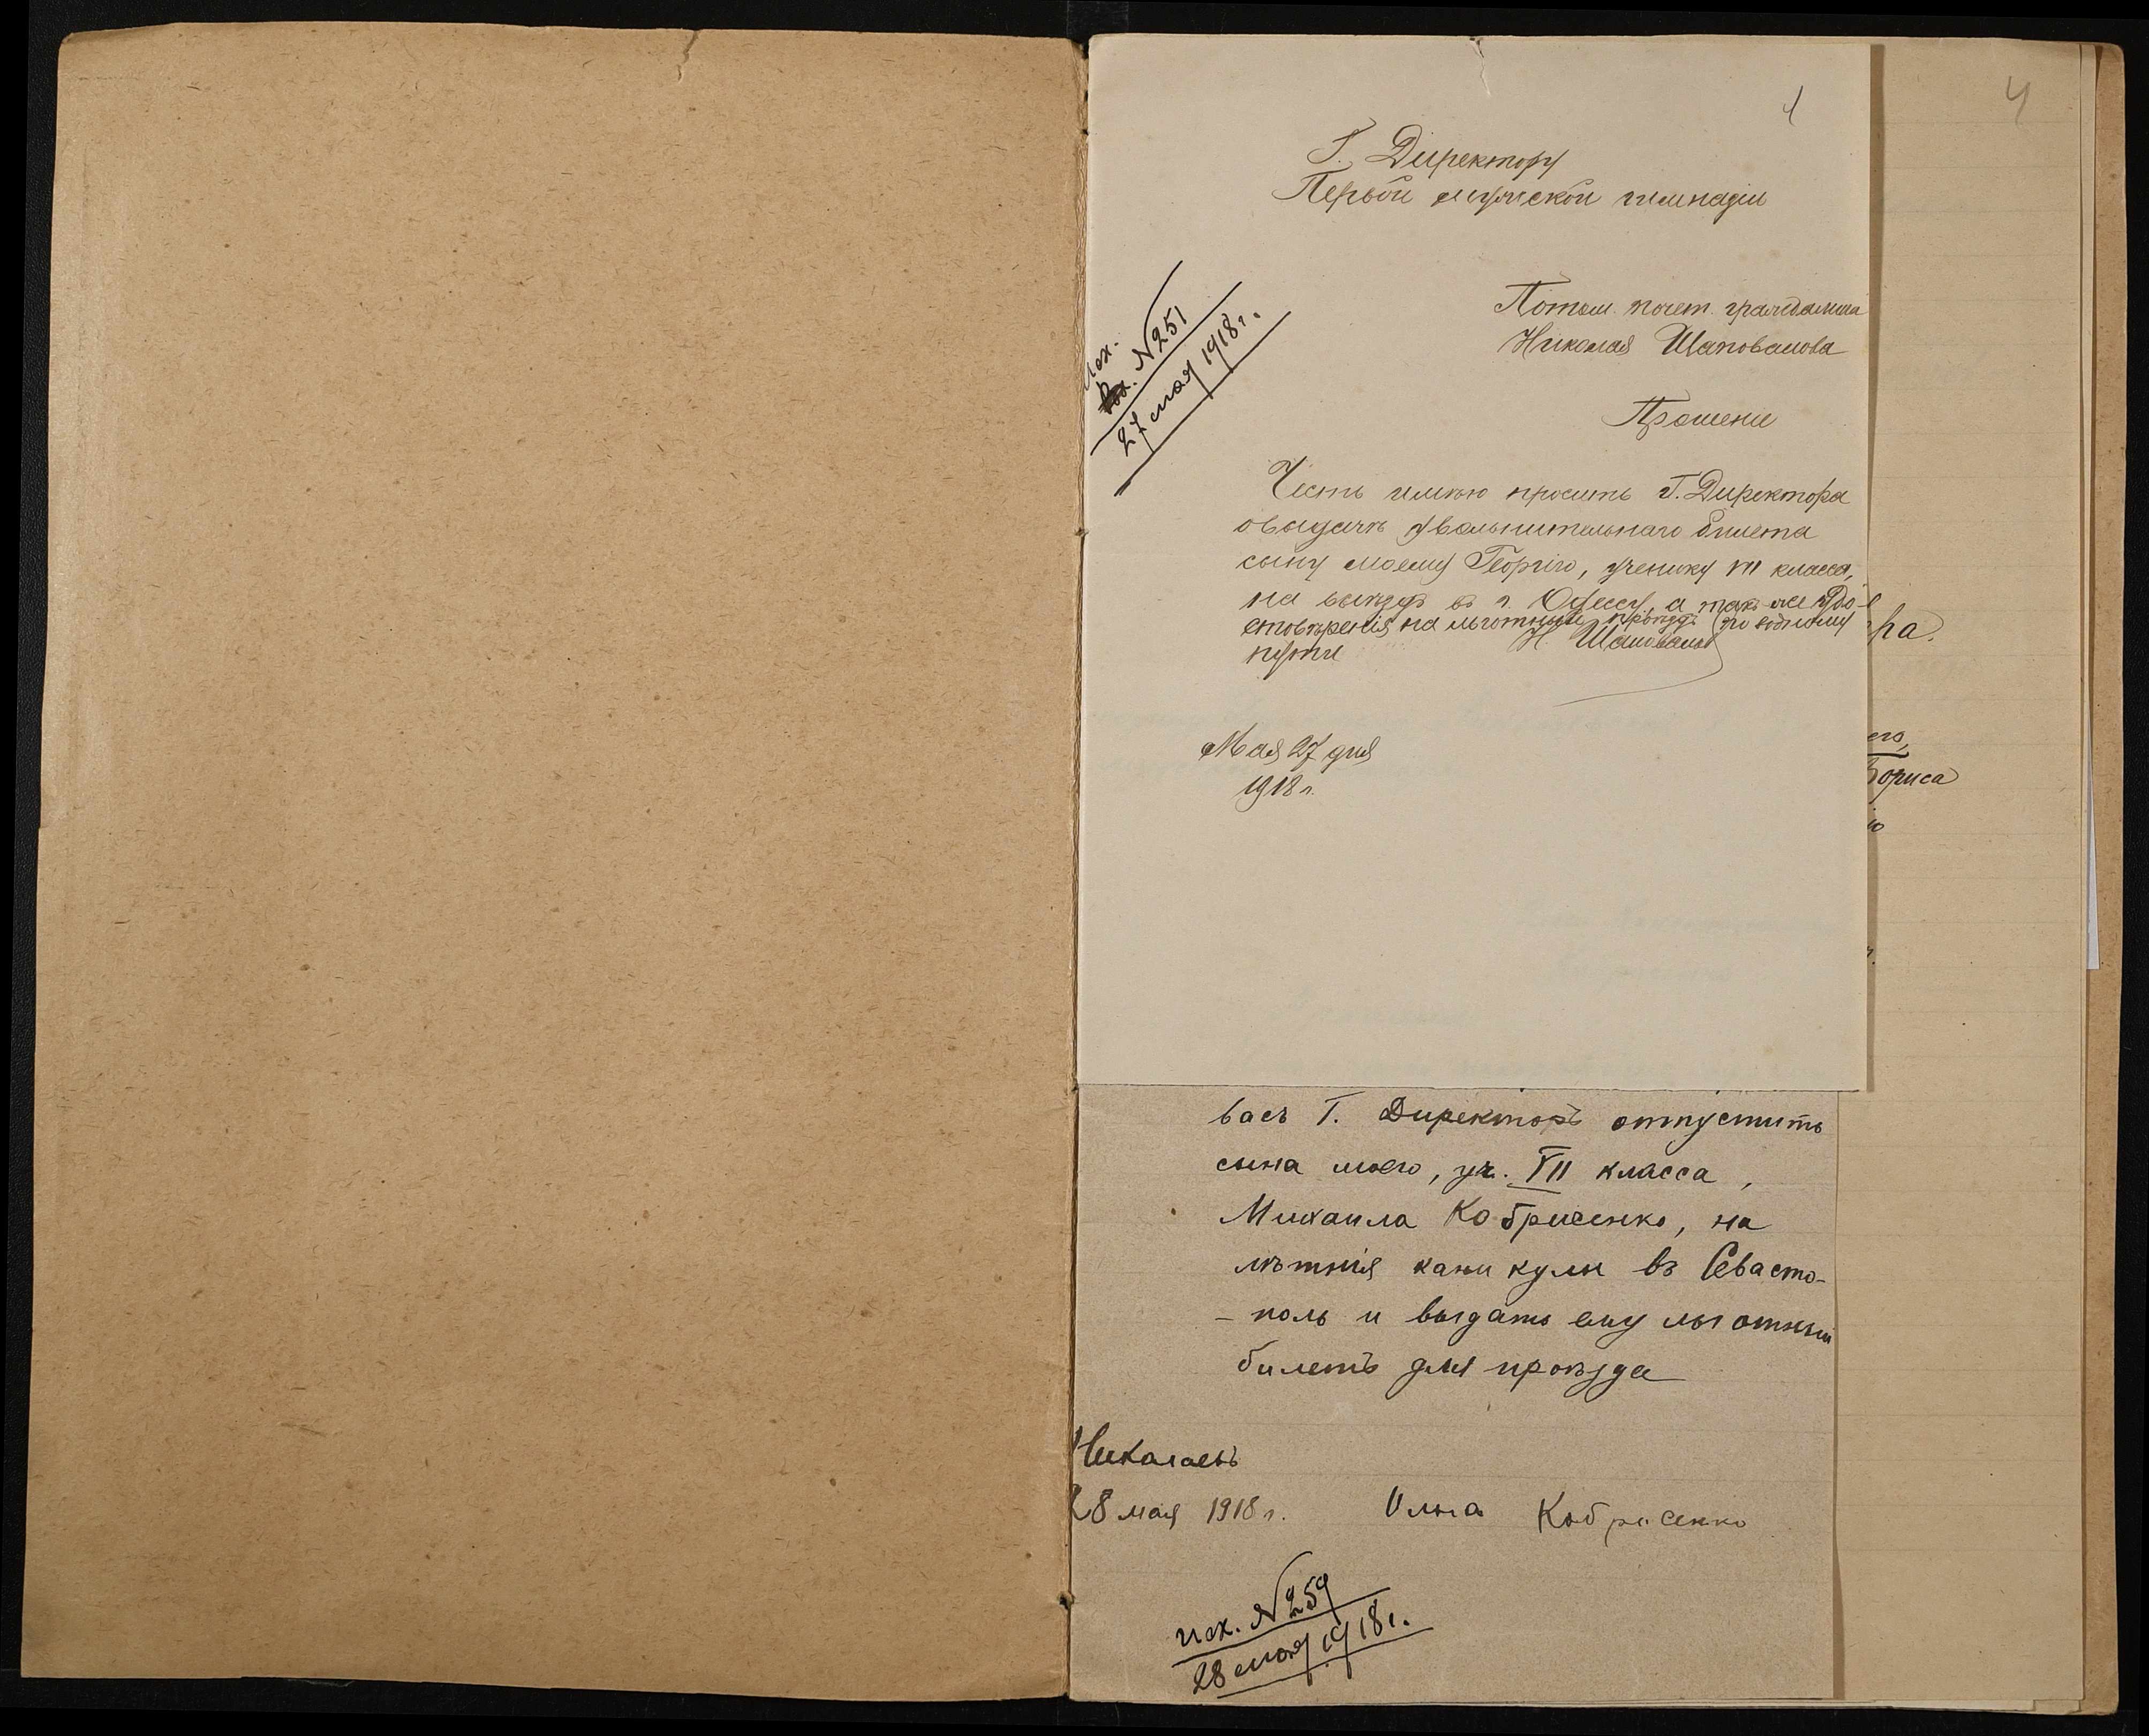 4
4
Г. Директору
Первой мужской гимназіи
Потом. почет. гражданина
Николая Шаповалова
Прошеніе
исх.
вх. №251
27 мая 1918 г.
Честь имѣю просить Г. Директора
о выдачѣ увольнительнаго билета
сыну моему Георгію, ученику VII класса,
на выѣздъ въ г. Одессу, а такъ же удо-
стовѣренія на льготный проѣздъ по водному
пути
Н. Шаповаловъ
Мая 27 дня
1918 г.
ра.
его,
Бориса
ю
васъ Г. Директоръ отпустить
сына моего, уч. VII класса,
Михаила Кобриченко, на
лѣтнія каникулы въ Севасто-
- поль и выдать ему льготный
билетъ для проѣзда
Николаевъ
28 мая 1918 г. Ольга Кобриченко
исх. №259
28 мая 1918 г.